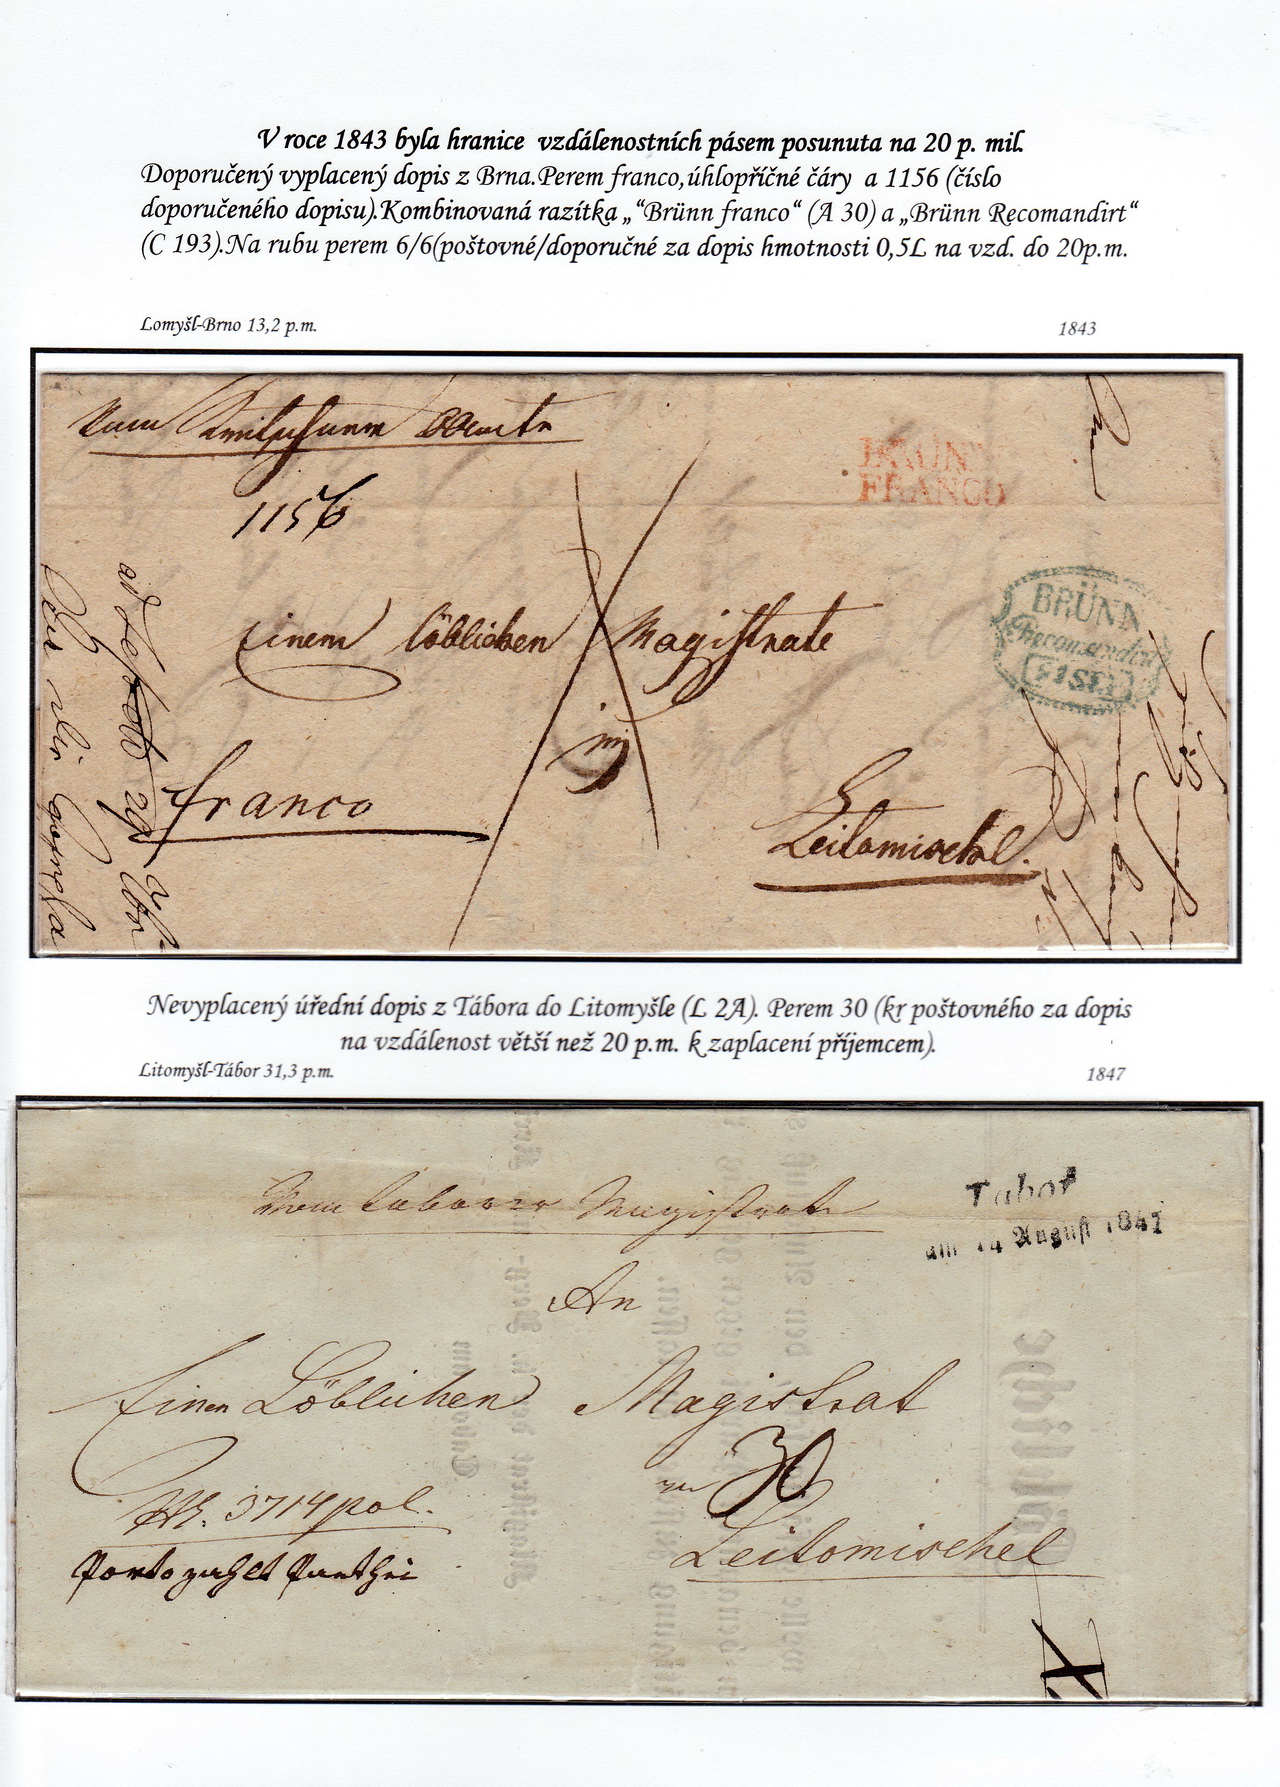 V roce 1843 byla hranice vzdálenostních pásem posunuta na 20 p. mil.
Doporučený vyplacený dopis z Brna.Perem franco,úhlopříčné čáry a 1156 (číslo
doporučeného dopisu).Kombinovaná razítka „“Brünn franco“ (A 30) a „Brünn Recomandirt“
(C 193).Na rubu perem 6/6(poštovné/doporučné za dopis hmotnosti 0,5L na vzd. do 20p.m.
Lomyšl-Brno 13,2 p.m.
1843
1156
BRÜNN
FRANCO
BRÜNN
Recomandirt
Einem löblichen Magistrate
in
franco
Leitomischel.
Nevyplacený úřední dopis z Tábora do Litomyšle (L 2A). Perem 30 (kr poštovného za dopis
na vzdálenost větší než 20 p.m. k zaplacení příjemcem).
Litomyšl-Tábor 31,3 p.m.
1847
Vom Taborer Magistrate
Tabor
am 14 August 1847
An
Einen Löblichen Magistrat
30
No. 3714 pol.
Leitomischel
Porto zahlt Parthei